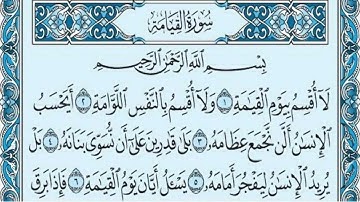 سُورَةُ القِيَامَةِ
بِسْمِ اللَّهِ الرَّحْمَٰنِ الرَّحِيمِ
لَا أُقْسِمُ بِيَوْمِ الْقِيَامَةِ ١ وَلَا أُقْسِمُ بِالنَّفْسِ اللَّوَّامَةِ ٢ أَيَحْسَبُ
الْإِنسَانُ أَلَّن نَّجْمَعَ عِظَامَهُ ٣ بَلَىٰ قَادِرِينَ عَلَىٰ أَن نُّسَوِّيَ بَنَانَهُ ٤ بَلْ
يُرِيدُ الْإِنسَانُ لِيَفْجُرَ أَمَامَهُ ٥ يَسْأَلُ أَيَّانَ يَوْمُ الْقِيَامَةِ ٦ فَإِذَا بَرِقَ